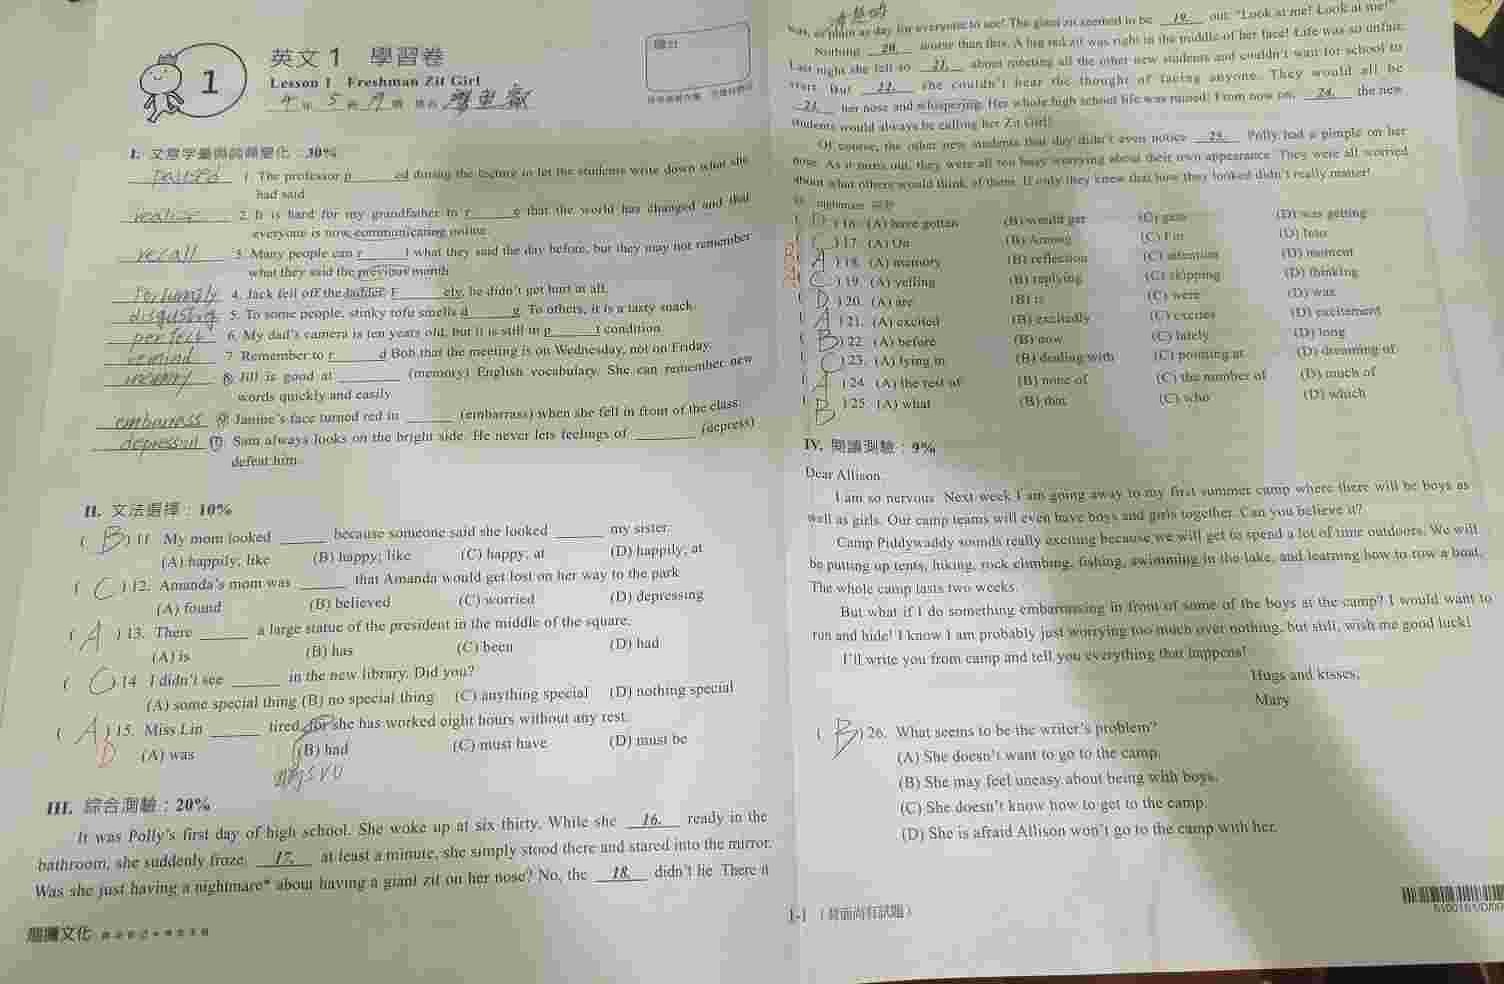 1
英文 1 學習卷
Lesson 1 Freshman Zit Girl
年 5 班 19 號 姓名
得分
I. 文意字彙與詞類變化:30%
paused 1. The professor p______ed during the lecture to let the students write down what she
had said.
realize 2. It is hard for my grandfather to r______e that the world has changed and that
everyone is now communicating online.
recall 3. Many people can r______l what they said the day before, but they may not remember
what they said the previous month.
Fortunately 4. Jack fell off the ladder. F______ely, he didn't get hurt at all.
disgusting 5. To some people, stinky tofu smells d______g. To others, it is a tasty snack.
perfect 6. My dad's camera is ten years old, but it is still in p______t condition.
remind 7. Remember to r______d Bob that the meeting is on Wednesday, not on Friday.
memory 8. Jill is good at ______ (memory) English vocabulary. She can remember new
words quickly and easily.
embarrass 9. Janine's face turned red in ______ (embarrass) when she fell in front of the class.
depression 10. Sam always looks on the bright side. He never lets feelings of ______ (depress)
defeat him.
II. 文法選擇:10%
( B ) 11. My mom looked ______ because someone said she looked ______ my sister.
(A) happily; like (B) happy; like (C) happy; at (D) happily; at
( C ) 12. Amanda's mom was ______ that Amanda would get lost on her way to the park.
(A) found (B) believed (C) worried (D) depressing
( A ) 13. There ______ a large statue of the president in the middle of the square.
(A) is (B) has (C) been (D) had
( C ) 14. I didn't see ______ in the new library. Did you?
(A) some special thing (B) no special thing (C) anything special (D) nothing special
( A ) 15. Miss Lin ______ tired, for she has worked eight hours without any rest.
D (A) was (B) had (C) must have (D) must be
III. 綜合測驗:20%
It was Polly's first day of high school. She woke up at six thirty. While she 16. ready in the
bathroom, she suddenly froze. 17. at least a minute, she simply stood there and stared into the mirror.
Was she just having a nightmare* about having a giant zit on her nose? No, the 18. didn't lie. There it
was, as plain as day for everyone to see! The giant zit seemed to be 19. out: "Look at me! Look at me!"
Nothing 20. worse than this. A big red zit was right in the middle of her face! Life was so unfair.
Last night she felt so 21. about meeting all the other new students and couldn't wait for school to
start. But 22. she couldn't bear the thought of facing anyone. They would all be
23. her nose and whispering. Her whole high school life was ruined! From now on, 24. the new
students would always be calling her Zit Girl!
Of course, the other new students that day didn't even notice 25. Polly had a pimple on her
nose. As it turns out, they were all too busy worrying about their own appearance. They were all worried
about what others would think of them. If only they knew that how they looked didn't really matter!
nightmare 惡夢
( D ) 16. (A) have gotten (B) would get (C) gets (D) was getting
( C ) 17. (A) On (B) Among (C) For (D) Into
( A ) 18. (A) memory (B) reflection (C) attention (D) moment
( C ) 19. (A) yelling (B) replying (C) skipping (D) thinking
( D ) 20. (A) are (B) is (C) were (D) was
( A ) 21. (A) excited (B) excitedly (C) excites (D) excitement
( B ) 22. (A) before (B) now (C) lately (D) long
( C ) 23. (A) lying in (B) dealing with (C) pointing at (D) dreaming of
( A ) 24. (A) the rest of (B) none of (C) the number of (D) much of
( B ) 25. (A) what (B) that (C) who (D) which
IV. 閱讀測驗:9%
Dear Allison,
I am so nervous. Next week I am going away to my first summer camp where there will be boys as
well as girls. Our camp teams will even have boys and girls together. Can you believe it?
Camp Piddywaddy sounds really exciting because we will get to spend a lot of time outdoors. We will
be putting up tents, hiking, rock climbing, fishing, swimming in the lake, and learning how to row a boat.
The whole camp lasts two weeks.
But what if I do something embarrassing in front of some of the boys at the camp? I would want to
run and hide! I know I am probably just worrying too much over nothing, but still, wish me good luck!
I'll write you from camp and tell you everything that happens!
Hugs and kisses,
Mary
( B ) 26. What seems to be the writer's problem?
(A) She doesn't want to go to the camp.
(B) She may feel uneasy about being with boys.
(C) She doesn't know how to get to the camp.
(D) She is afraid Allison won't go to the camp with her.
1-1 (背面尚有試題)
翰林文化